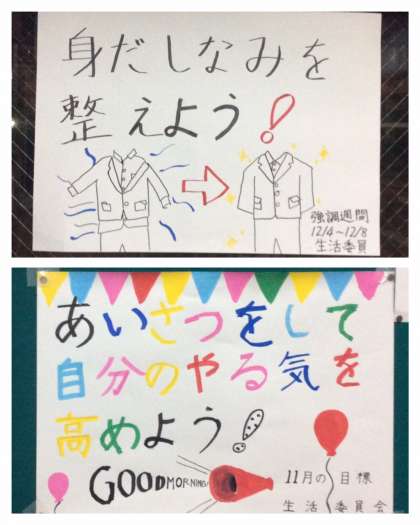 身だしなみを
整えよう！
強調週間
12/4～12/8
生活委員
あいさつをして
自分のやる気を
高めよう！
GOOD MORNING!
11月の目標
生活委員会